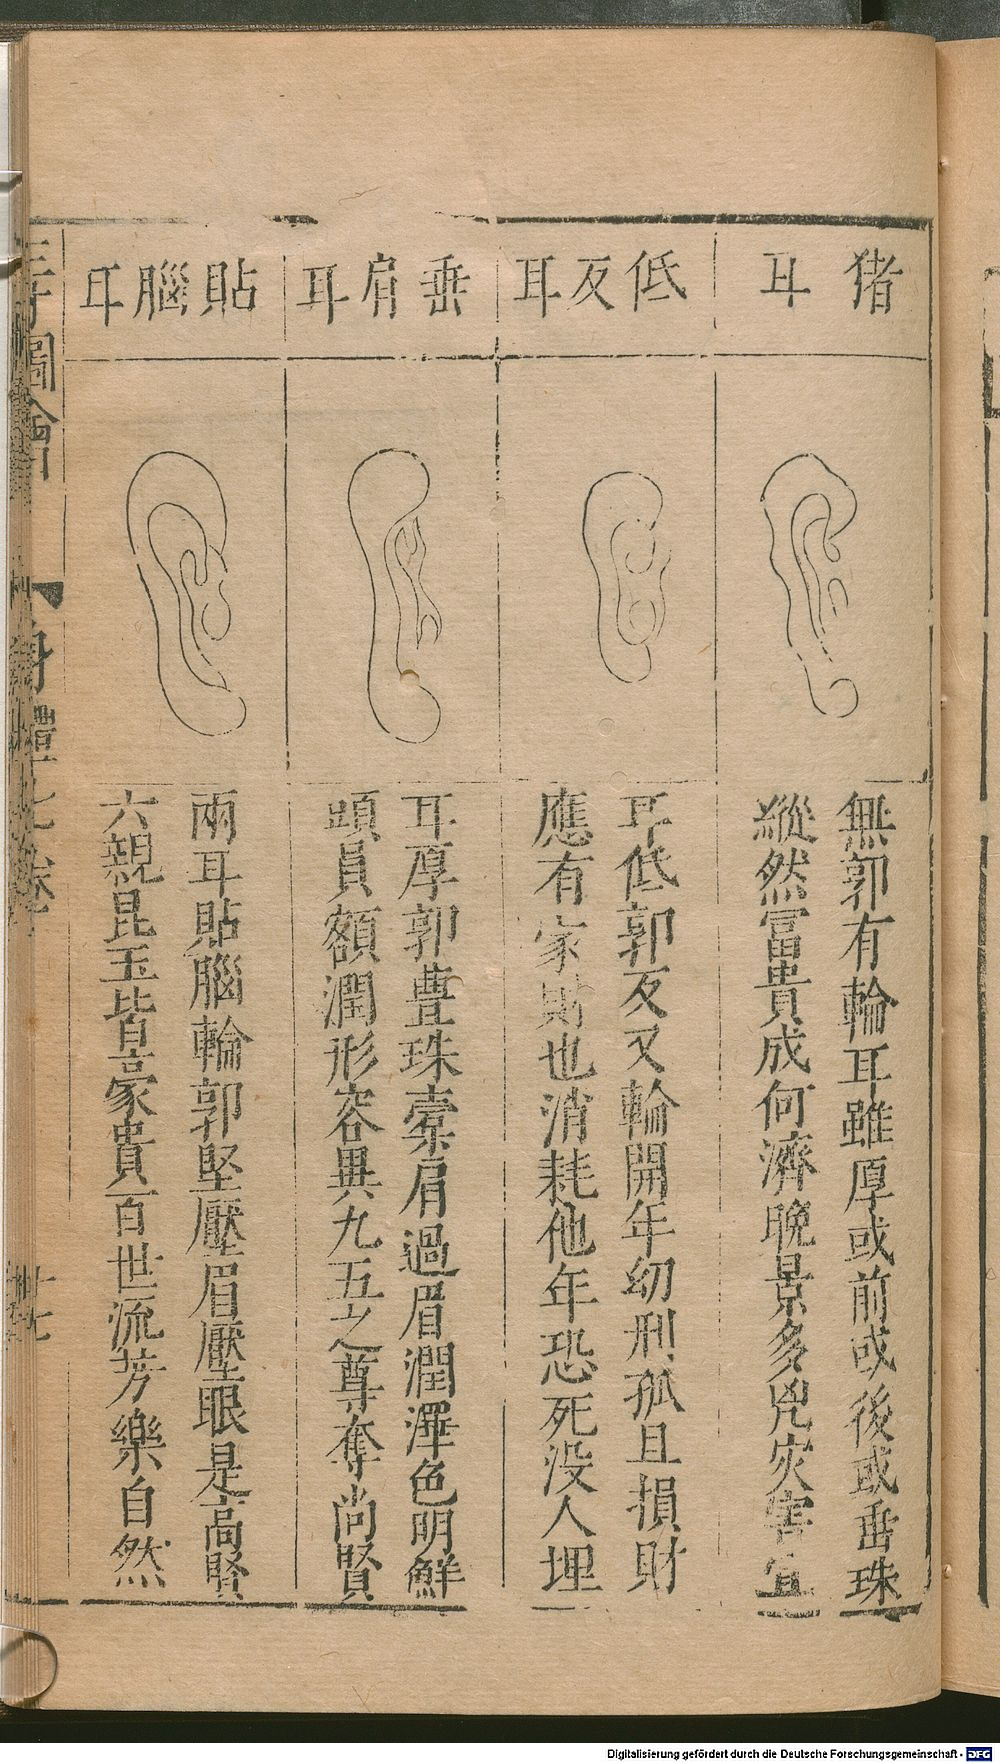 猪耳
無郭有輪耳雖厚或前或後或垂珠
縱然冨貴成何濟晚景多凶灾害宜
低反耳
耳低郭反又輪開年幼刑孤且損財
應有家財也消耗他年恐死没人埋
垂肩耳
耳厚郭豊珠𡸁肩過眉潤澤色明鮮
頭員額潤形容異九五之尊奪尚賢
貼腦耳
兩耳貼腦輪郭堅壓眉壓眼是高賢
六親昆玉皆豪貴百世流芳樂自然
圖會
身體七卷
廿七
Digitalisierung gefördert durch die Deutsche Forschungsgemeinschaft - DFG